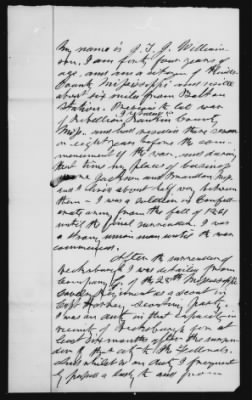 My name is J. T. J. William-
son. I am forty four years of
age and am a citizen of Hinds
County Mississippi and reside
about six miles from Bolton
Station. Previous to late war
of Rebellion I resided in Rankin County
Miss. and had resided there seven
or eight years before the com-
mencement of the war, and during
that time my places of business
were Jackson and Brandon Miss
and I lived about half way between
them. I was a soldier in Confed-
erate army from the fall of 1861
until the final surrender. I was
a strong union man until the war
commenced.
After the surrender of
Vicksburgh I was detailed from
Company of the 28th Mississippi
Cavalry Regiment as a scout in
scouting party.
I was on duty in that capacity in
of Vicksburgh for at
least six months after the surren-
der of that city to the Federals.
And whilst on duty I frequent
ly passed to and from